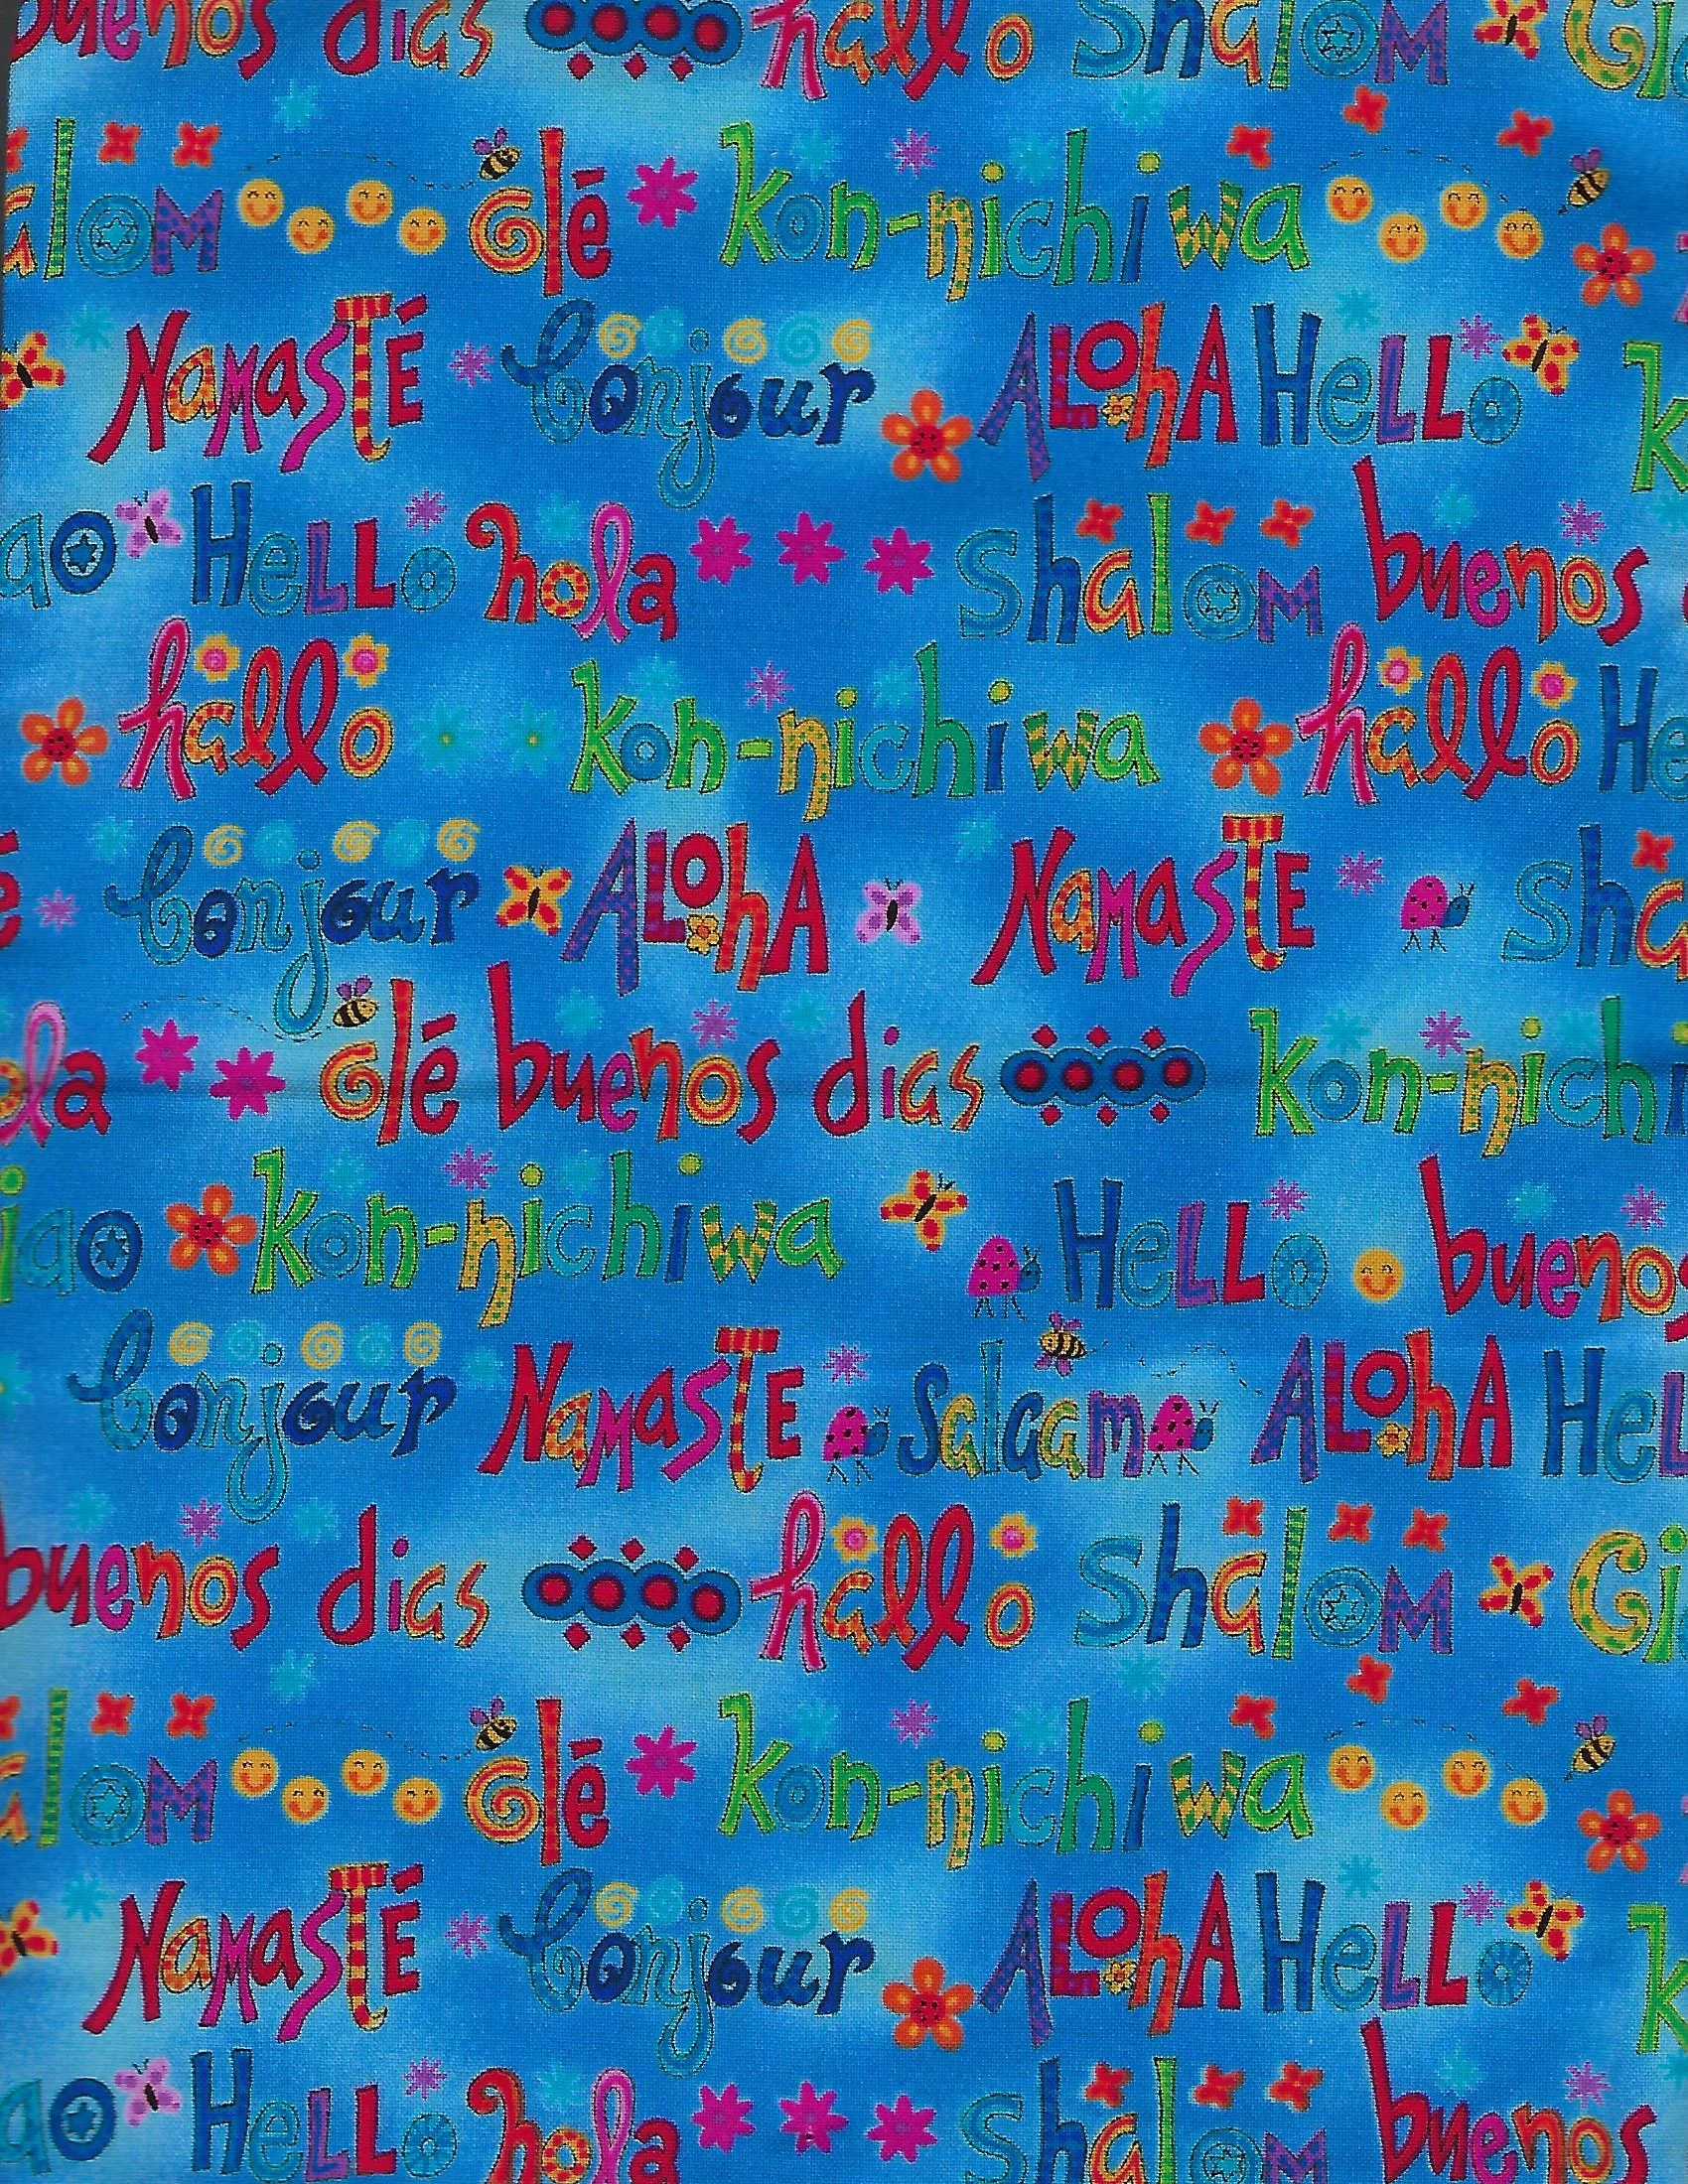 buenos dias hallo Shalom Cia
alom olé kon-nichiwa
Namasté bonjour Aloha Hello k
ao Hello hola Shalom buenos
hallo kon-nichiwa hallo He
é bonjour Aloha Namaste Sha
ola olé buenos dias kon-nichi
iao kon-nichiwa Hello buenos
bonjour Namaste Salaam Aloha Hel
buenos dias hallo Shalom Ci
alom olé kon-nichiwa
Namasté bonjour Aloha Hello k
ao Hello hola Shalom buenos